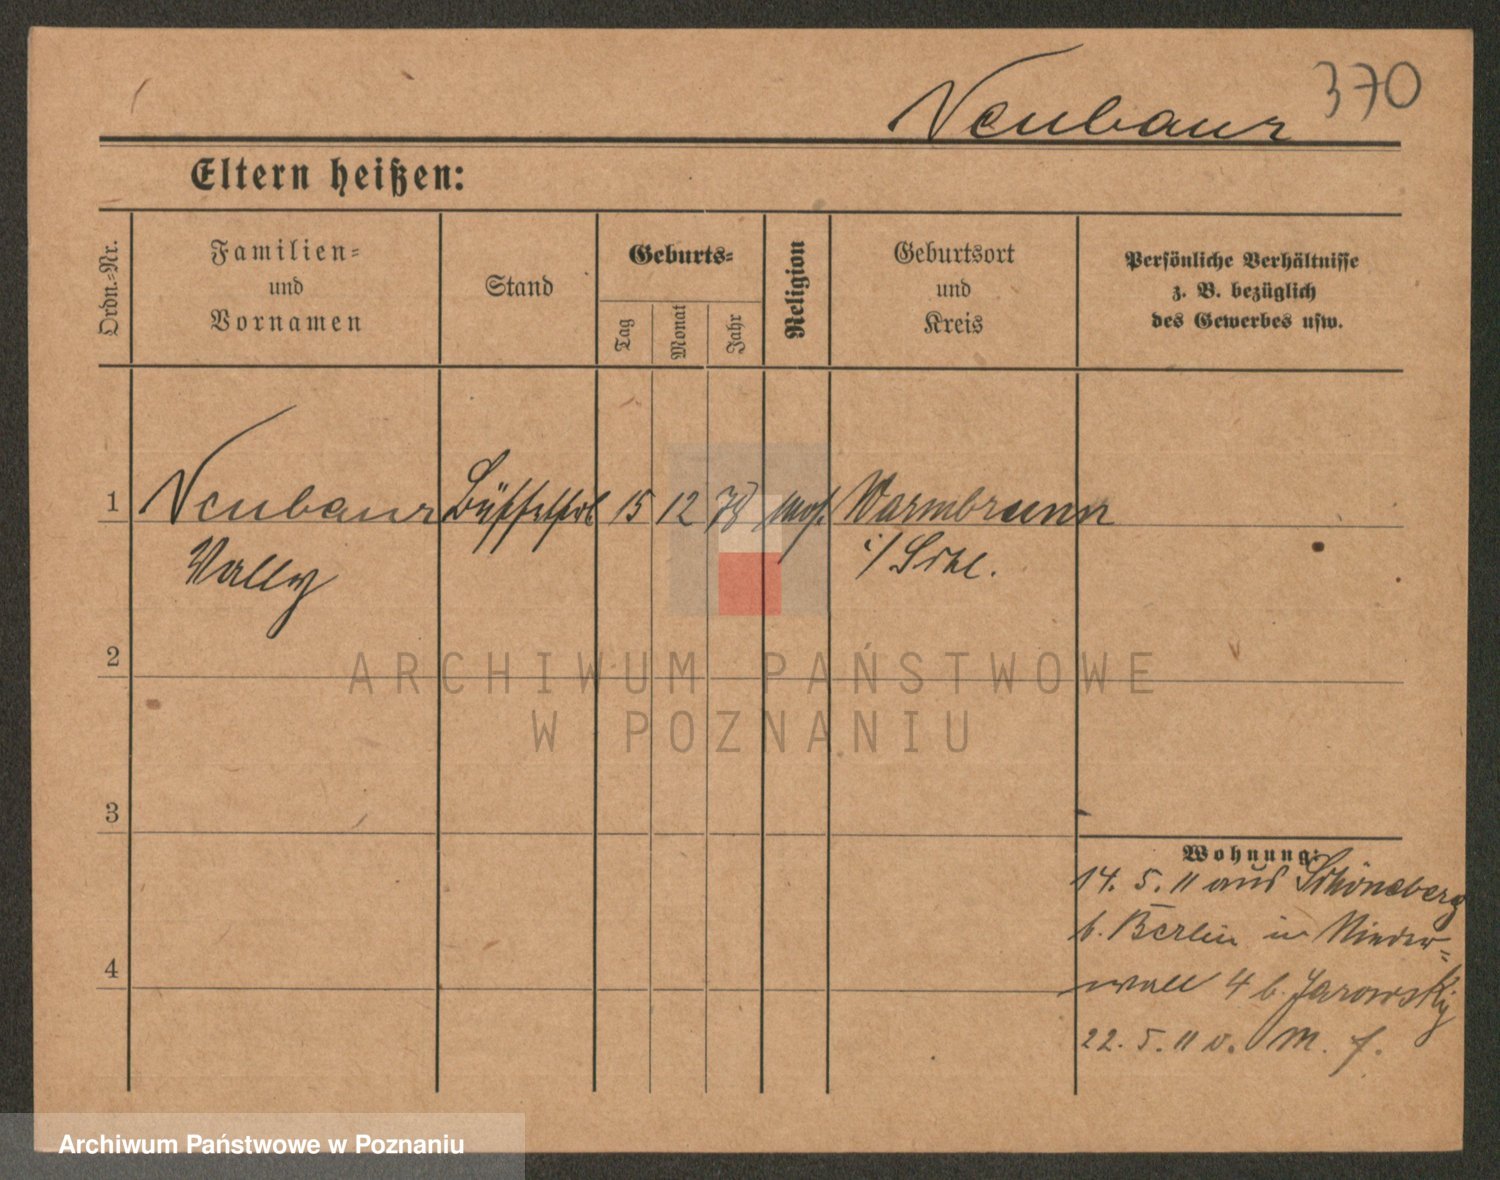 Neubaur 370
Eltern heißen:
Ordn.-Nr.
Familien-
und
Vornamen
Stand
Geburts-
Tag
Monat
Jahr
Religion
Geburtsort
und
Kreis
Persönliche Verhältnisse
z. B. bezüglich
des Gewerbes usw.
1 Neubaur Büffetfrl 15 12 78 mos. Warmbrunn
Wally i/Schl.
2
ARCHIWUM PAŃSTWOWE
W POZNANIU
3
Wohnung:
14. 5. 11 aus Schöneberg
b. Berlin in Nieder-
wall 4 b. Jarowsky
4
22. 5. 11 v. M. f.
Archiwum Państwowe w Poznaniu